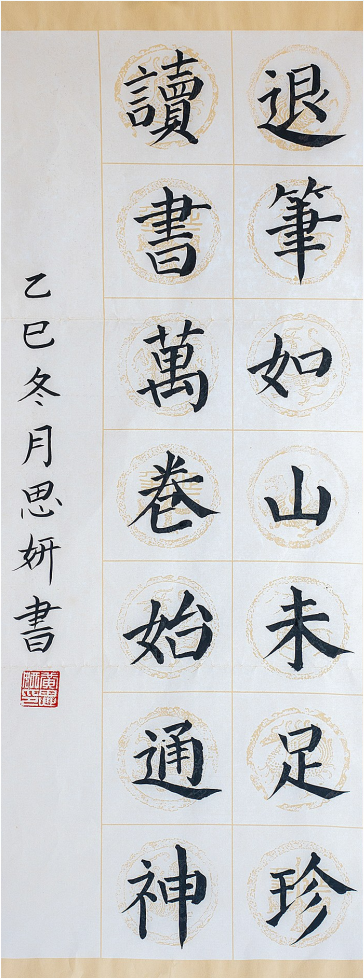 退筆如山未足珍
讀書萬卷始通神
乙巳冬月思妍書